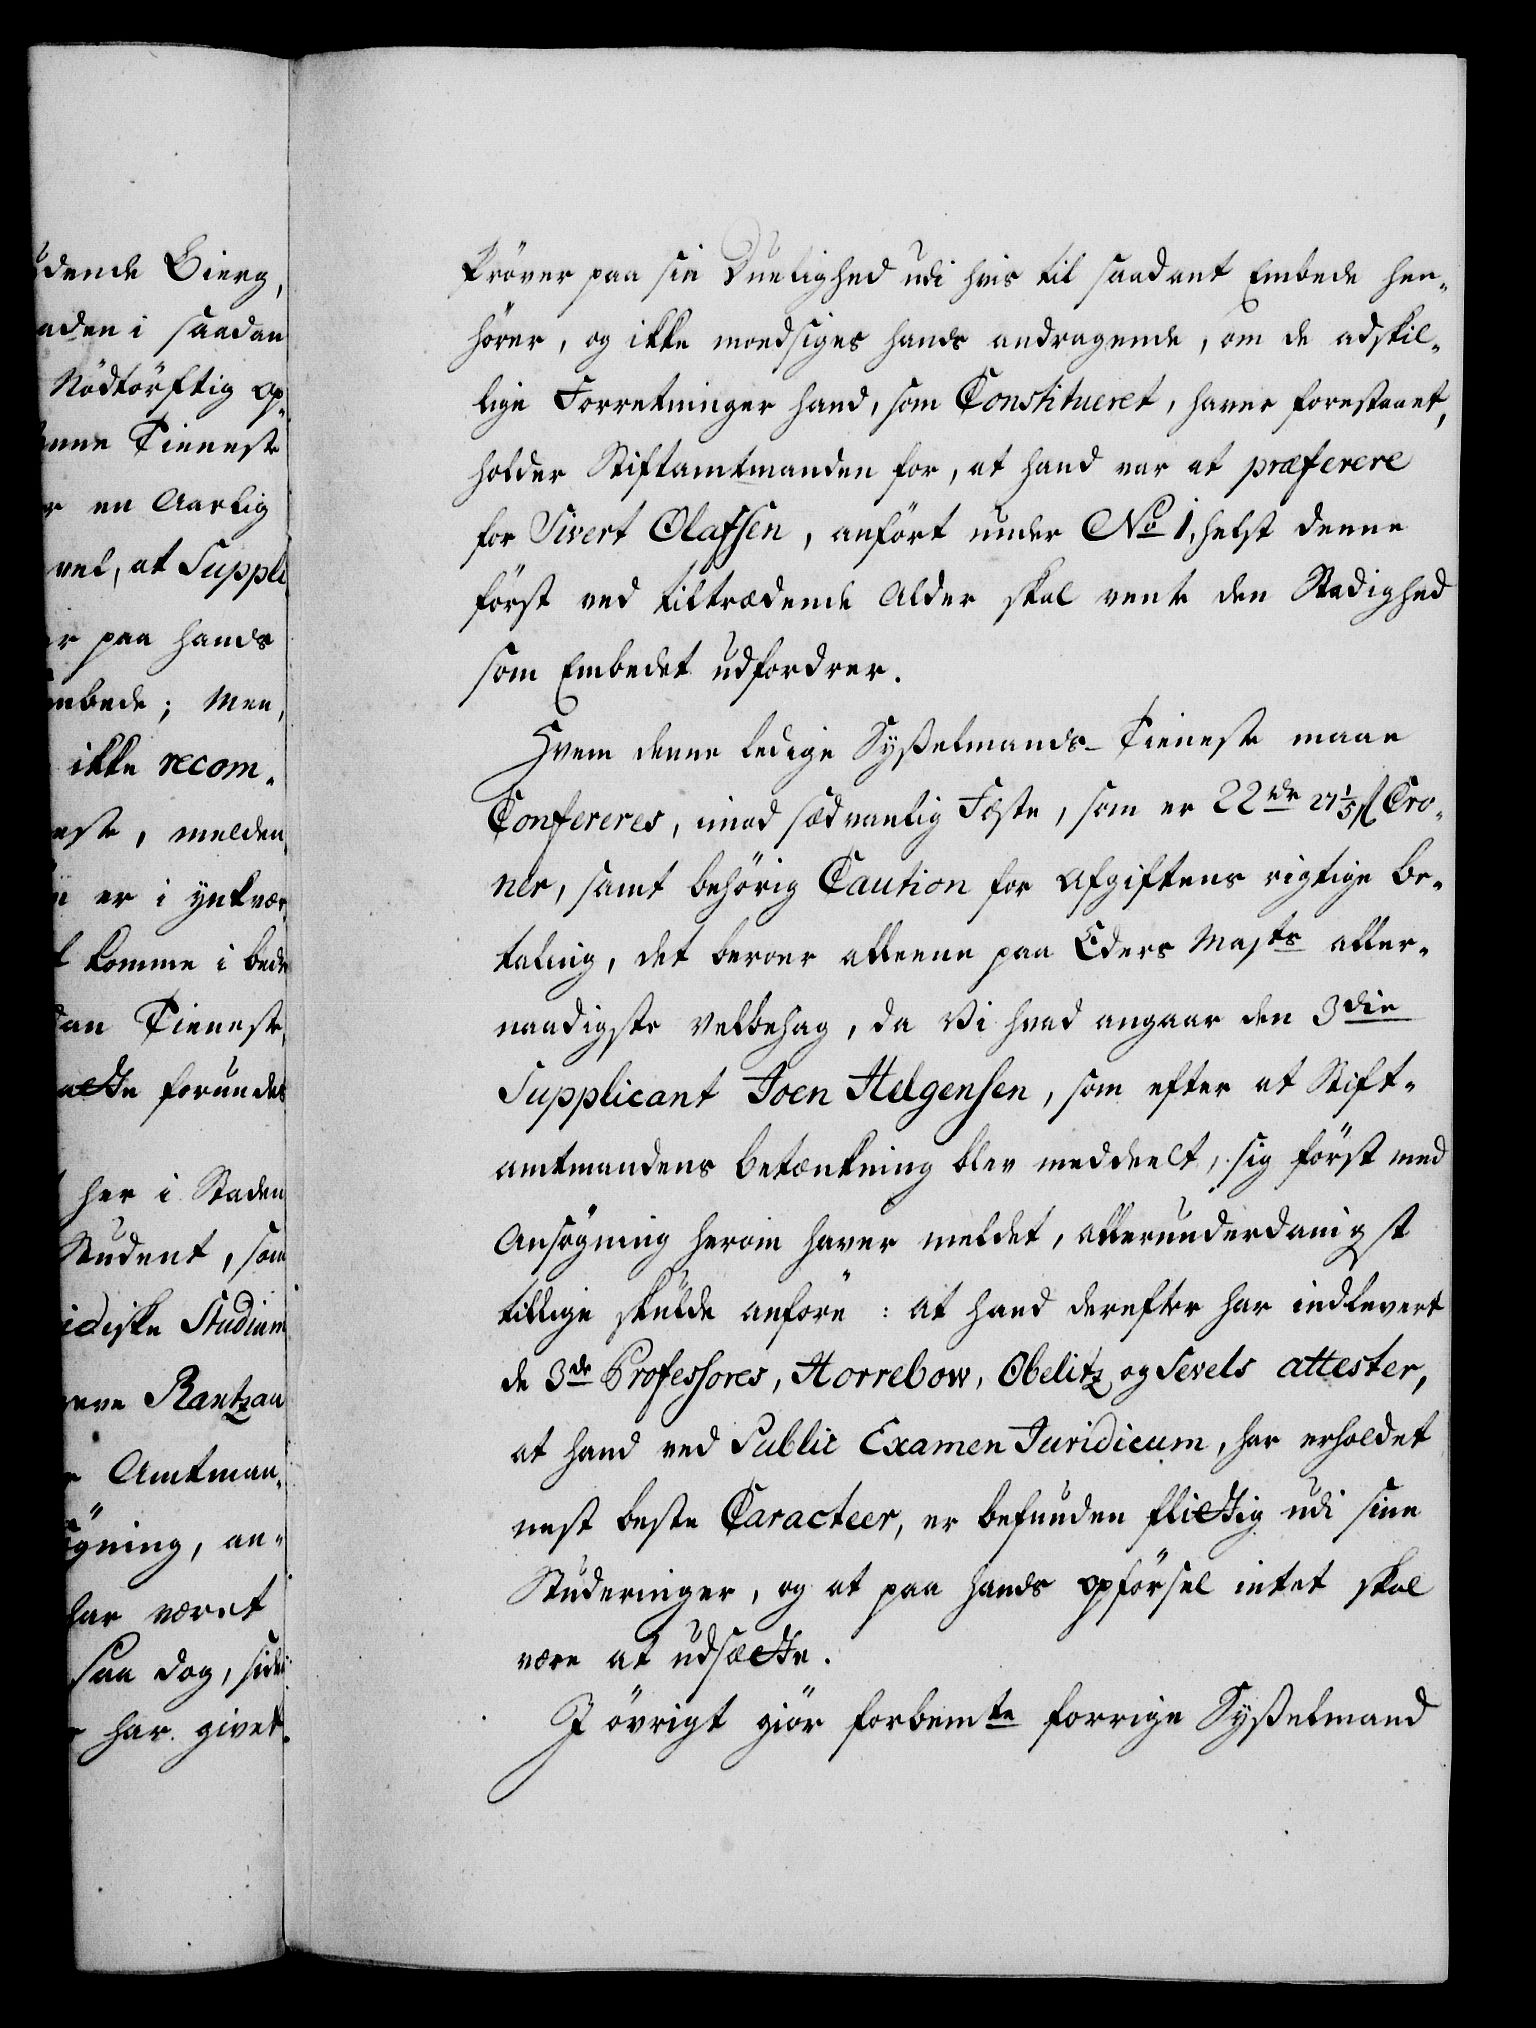 dende Bierg,
aden i saadan
Nödtörftig op-
nne Tieneste
en Aarlig
vel, at Suppli
paa hands
mbede; Men,
ikke recom-
este, melden,
er i ynkvær
komme i bedr
an Tieneste,
forundes
her i Staden
Student, som
idiske Studium
Rantzau
Amtman-
gning, an-
har været
saa dog, side
har givet.
Pröver paa sin Duelighed udi hvis til saadant Embede hen-
hörer, og ikke modsiges hands andragende, om de adskil-
lige Forretninger hand, som Constitueret, haver forestaaet,
holder Stiftamtmanden for, at hand var at præferere
for Sivert Olafsen, anfört under No 1, helst denne
först ved tiltrædende Alder skal vente den Stadighed
som Embedet udfordrer.
Hvem denne ledige Sysselmands-Tieneste maae
Confereres, imod sædvanlig Fæste, som er 22 rdr 27 1/5 ß Cro-
ner, samt behörig Caution for Afgiftens rigtige be-
taling, det beroer alleene paa Eders Majts aller-
naadigste Velbehag, da Vi hvad angaar den 3die
Supplicant Joen Helgensen, som efter at Stift-
amtmandens betænkning blev meddeelt, sig först med
Ansögning herom haver meldet, allerunderdanigst
tillige skulde anföre: at hand derefter har indlevert
de 3de Professores, Horrebow, Obelitz og Sevels attester,
at hand ved Public Examen Juridicum, har erholdet
nest beste Caracteer, er befunden flittig udi sine
Studeringer, og at paa hands opförsel intet skal
være at udsætte.
I övrigt giör forbemte forrige Sysselmand